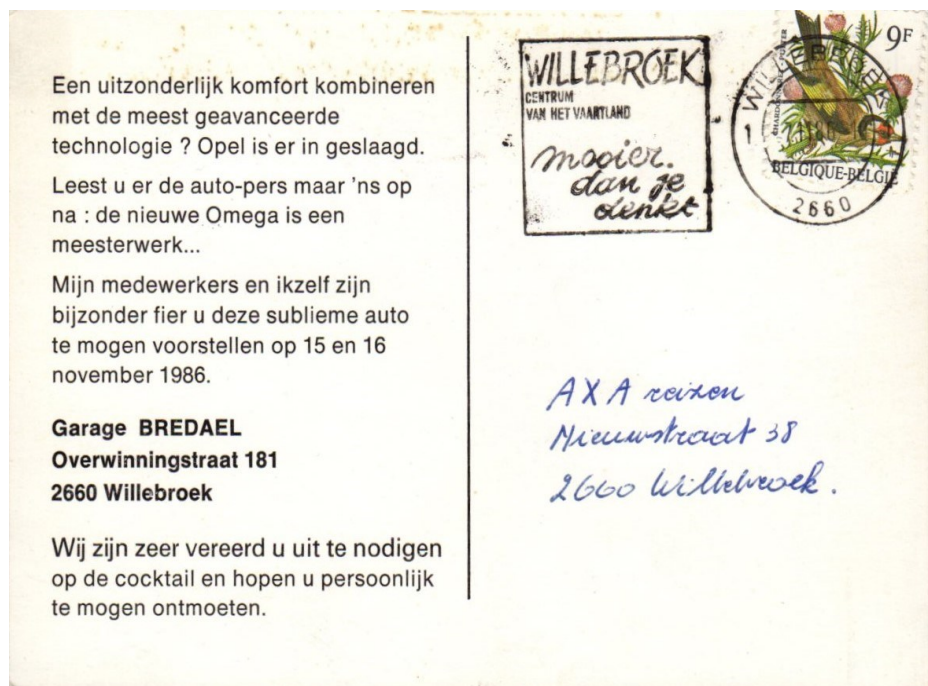 Een uitzonderlijk komfort kombineren
met de meest geavanceerde
technologie ? Opel is er in geslaagd.
Leest u er de auto-pers maar 'ns op
na : de nieuwe Omega is een
meesterwerk...
Mijn medewerkers en ikzelf zijn
bijzonder fier u deze sublieme auto
te mogen voorstellen op 15 en 16
november 1986.
Garage BREDAEL
Overwinningstraat 181
2660 Willebroek
Wij zijn zeer vereerd u uit te nodigen
op de cocktail en hopen u persoonlijk
te mogen ontmoeten.
WILLEBROEK
CENTRUM
VAN HET VAARTLAND
mooier
dan je
denkt
9F
BELGIQUE-BELGIË
2660
AXA reizen
Nieuwstraat 38
2660 Willebroek.